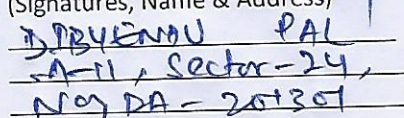 (Signatures, Name & Address)
DIBYENDU PAL
A-11, Sector-24,
NOIDA - 201301